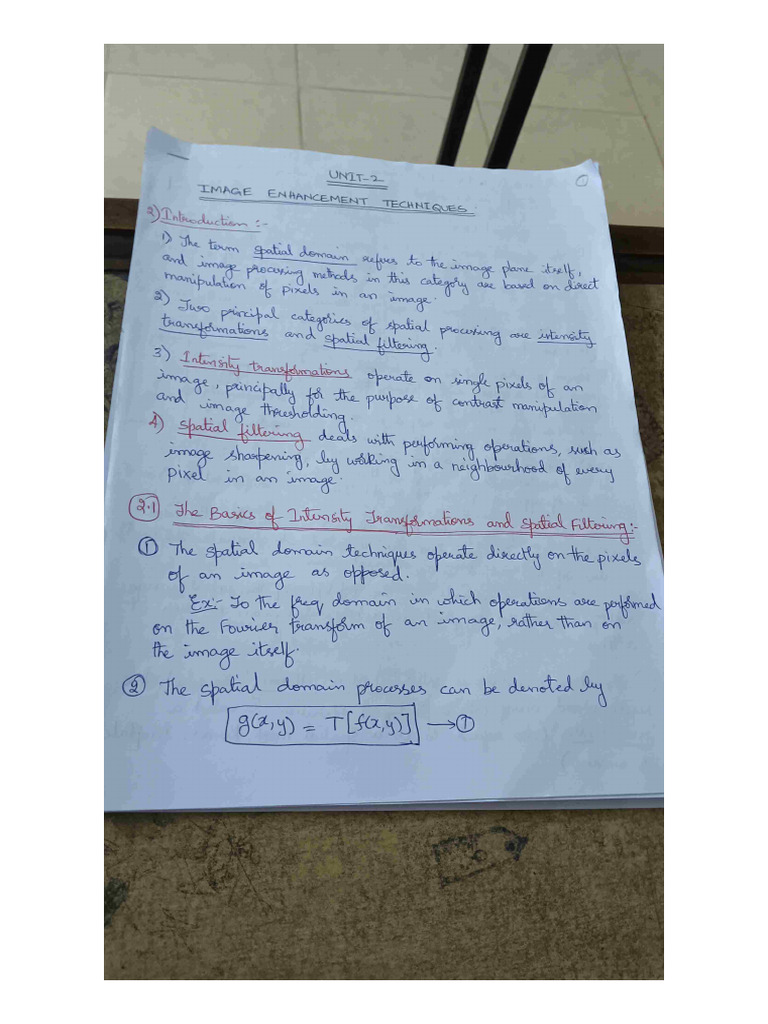 UNIT-2
①
IMAGE ENHANCEMENT TECHNIQUES
2) Introduction :-
1) The term spatial domain refers to the image plane itself,
and image processing methods in this category are based on direct
manipulation of pixels in an image.
2) Two principal categories of spatial processing are intensity
transformations and spatial filtering.
3) Intensity transformations operate on single pixels of an
image, principally for the purpose of contrast manipulation
and image thresholding.
4) Spatial filtering deals with performing operations, such as
image sharpening, by working in a neighbourhood of every
pixel in an image.
2.1 The Basics of Intensity Transformations and Spatial Filtering:-
① The spatial domain techniques operate directly on the pixels
of an image as opposed.
Ex:- To the freq domain in which operations are performed
on the Fourier transform of an image, rather than on
the image itself.
② The spatial domain processes can be denoted by
g(x,y) = T[f(x,y)] → ①